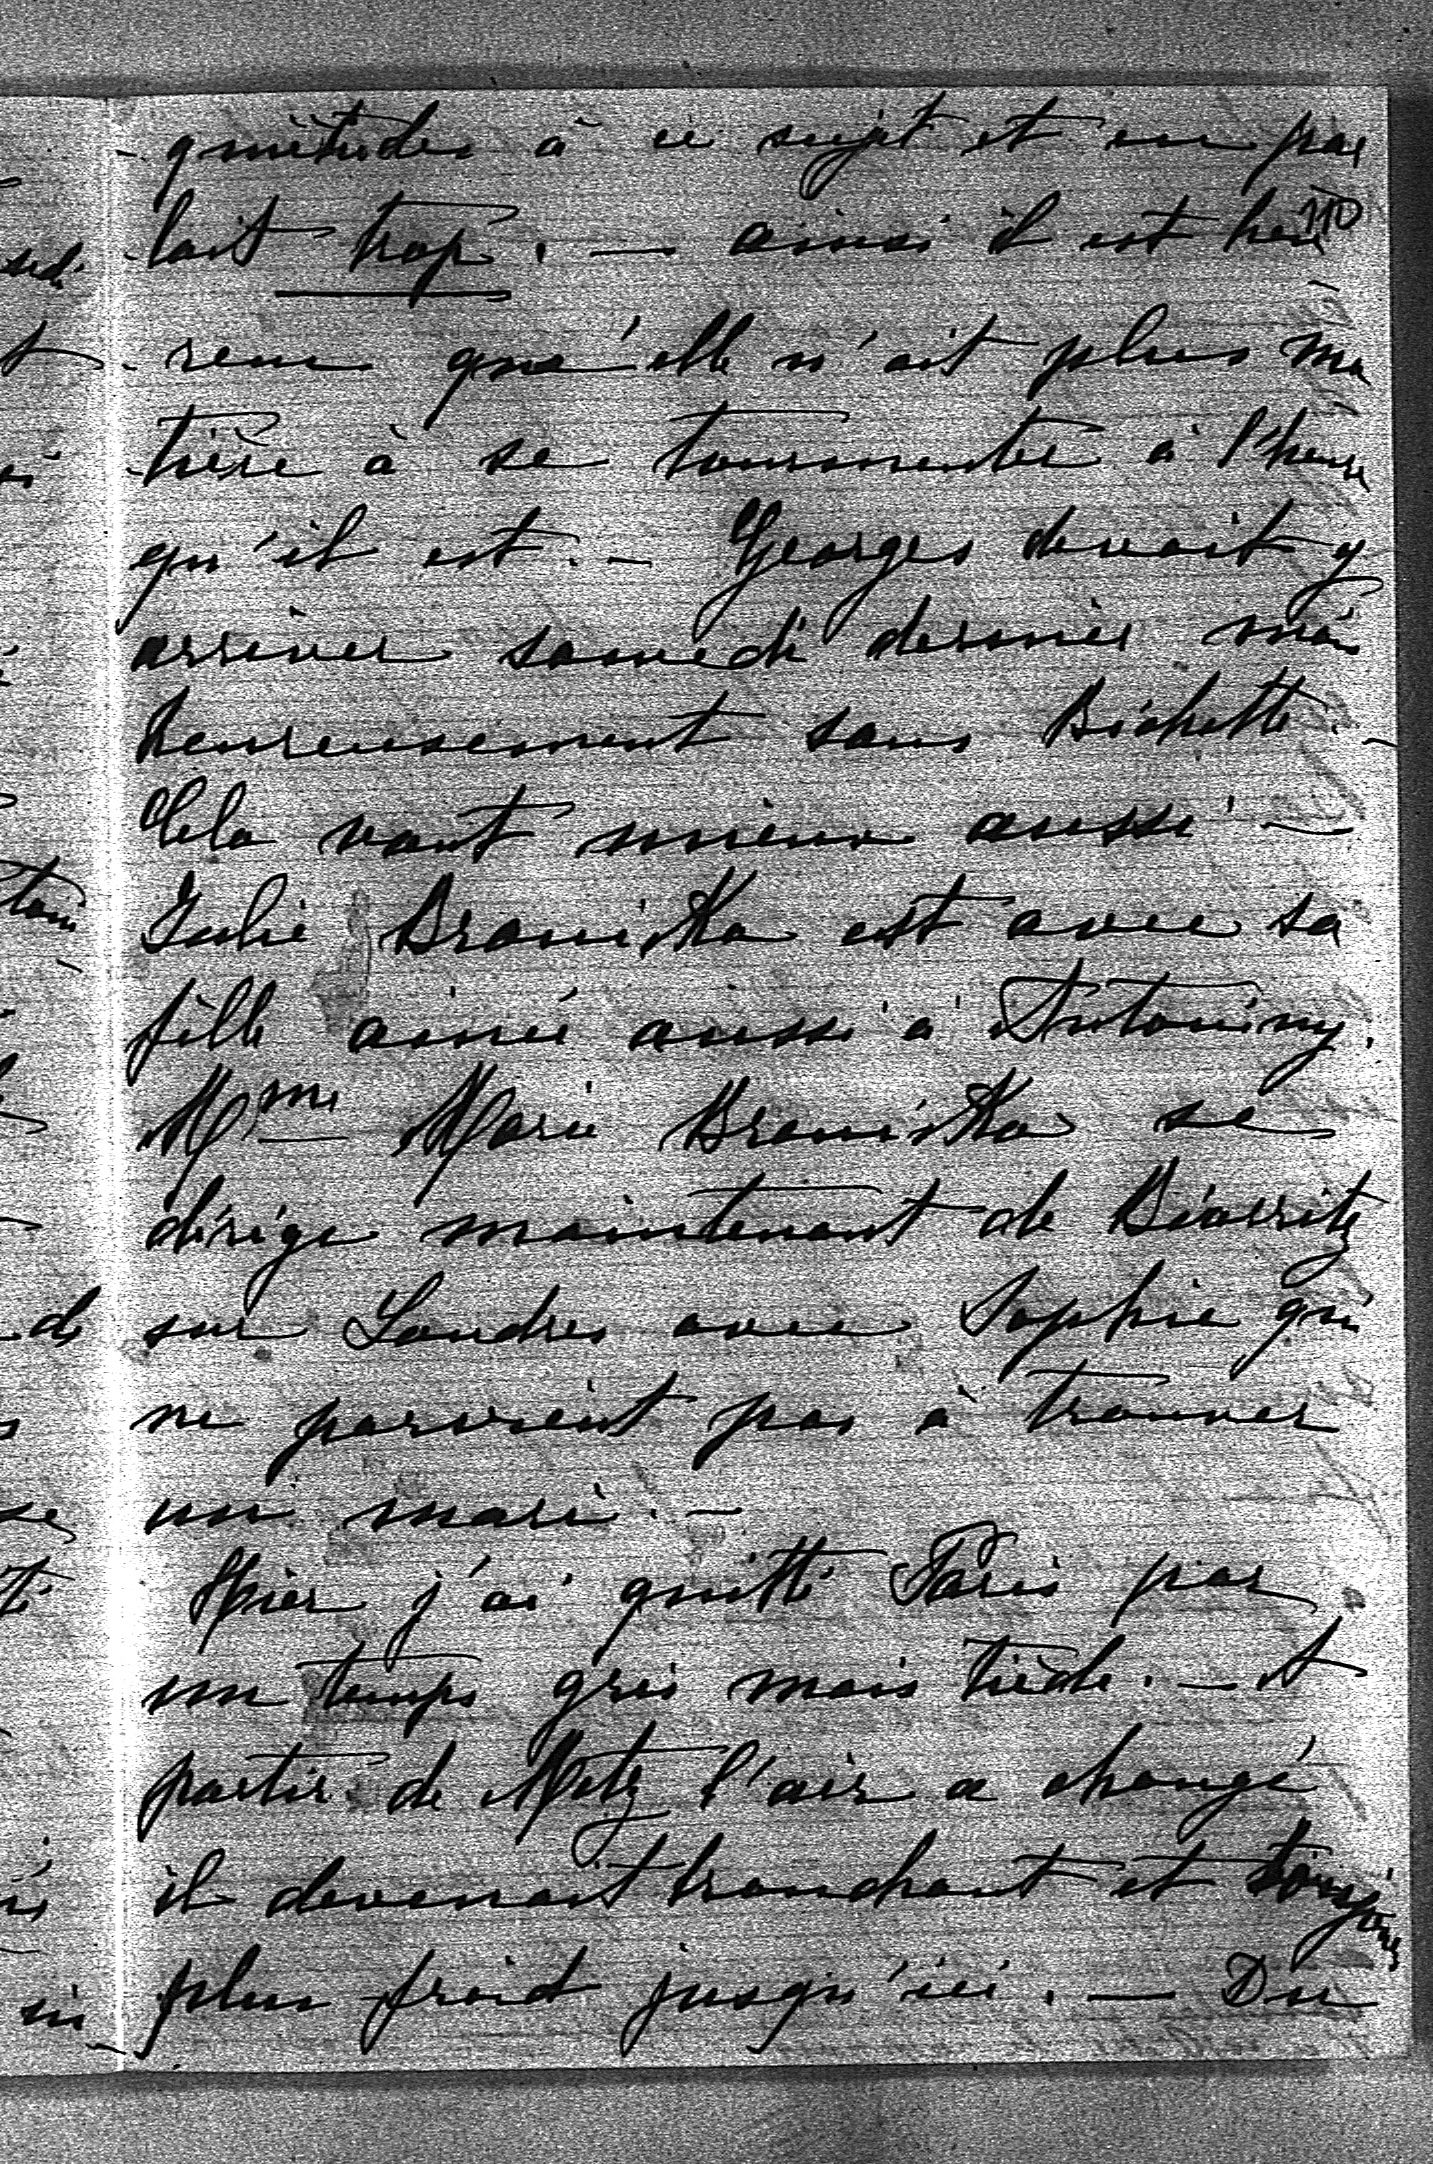 quiétudes à ce sujet et en par
110
lait trop. — ainsi il est heu
reux qu'elle n'ait plus ma
tière à se tourmenter à l'heure
qu'il est. — Georges devait y
arriver samedi dernier mal
heureusement sans Bichette. —
Cela vaut mieux aussi —
Julie Braniçka est avec sa
fille ainée aussi à Antoniny.
Mme Marie Braniçka se
dirige maintenant de Biarritz
sur Londres avec Sophie qui
ne parvient pas à trouver
un mari. —
Hier j'ai quitté Paris par
un temps gris mais tiède. — A
partir de Metz l'air a changé
il devenait tranchant et toujours
plus froid jusqu'ici. — Du